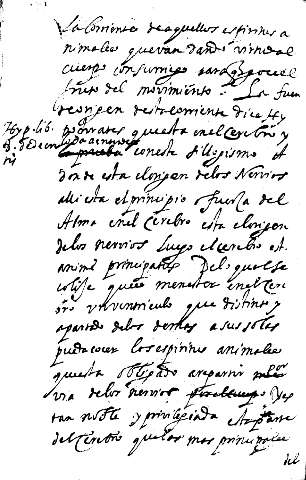 La Comienca de aquellos espiritus a
nimales que van dando virtud al
cuerpo con su riego para que goce el
fruto del movimiento. La fuen
de origen desta corriente dice Hy
Hyp. lib.
pocrates questa en el Cerebro y
la prueba con este sillogismo et
donde esta el origen de los Nervios
alli esta el principio o fuerza del
Alma en el Cerebro esta el origen
de los nervios luego el cerebro est
anime principatus Del qual se
colije que es menester en el Cer
bro un ventriculo que distinto y
apartado de los demas a sus solas
pueda cocer los espiritus animales
questa obligado a repartir por
via de los nervios Y es
tan noble y privilegiada esta parte
del Cerebro que las mas principales
del